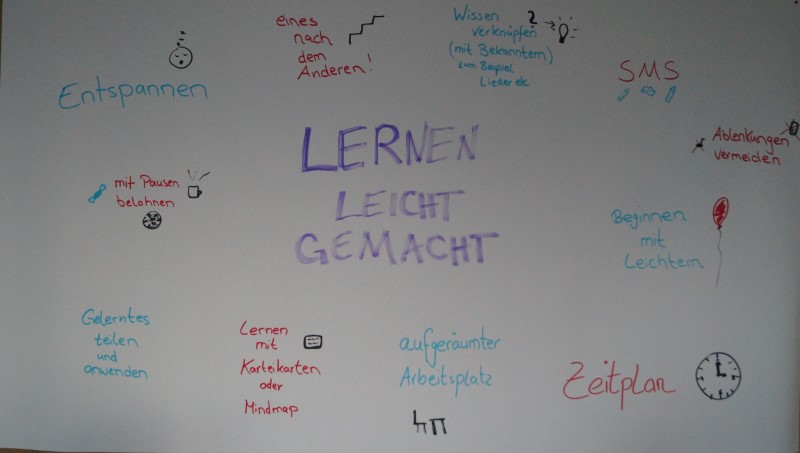 eines
nach
dem
Anderen!
Wissen
verknüpfen
(mit Bekanntem)
zum Beispiel
Lieder etc
SMS
Entspannen
LERNEN
LEICHT
GEMACHT
Ablenkungen
vermeiden
mit Pausen
belohnen
Beginnen
mit
Leichtem
Gelerntes
teilen
und
anwenden
Lernen
mit
Karteikarten
oder
Mindmap
aufgeräumter
Arbeitsplatz
Zeitplan